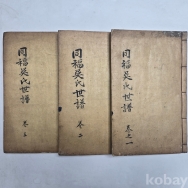 同福吳氏世譜
卷之一
同福吳氏世譜
同福吳氏世譜
kobay